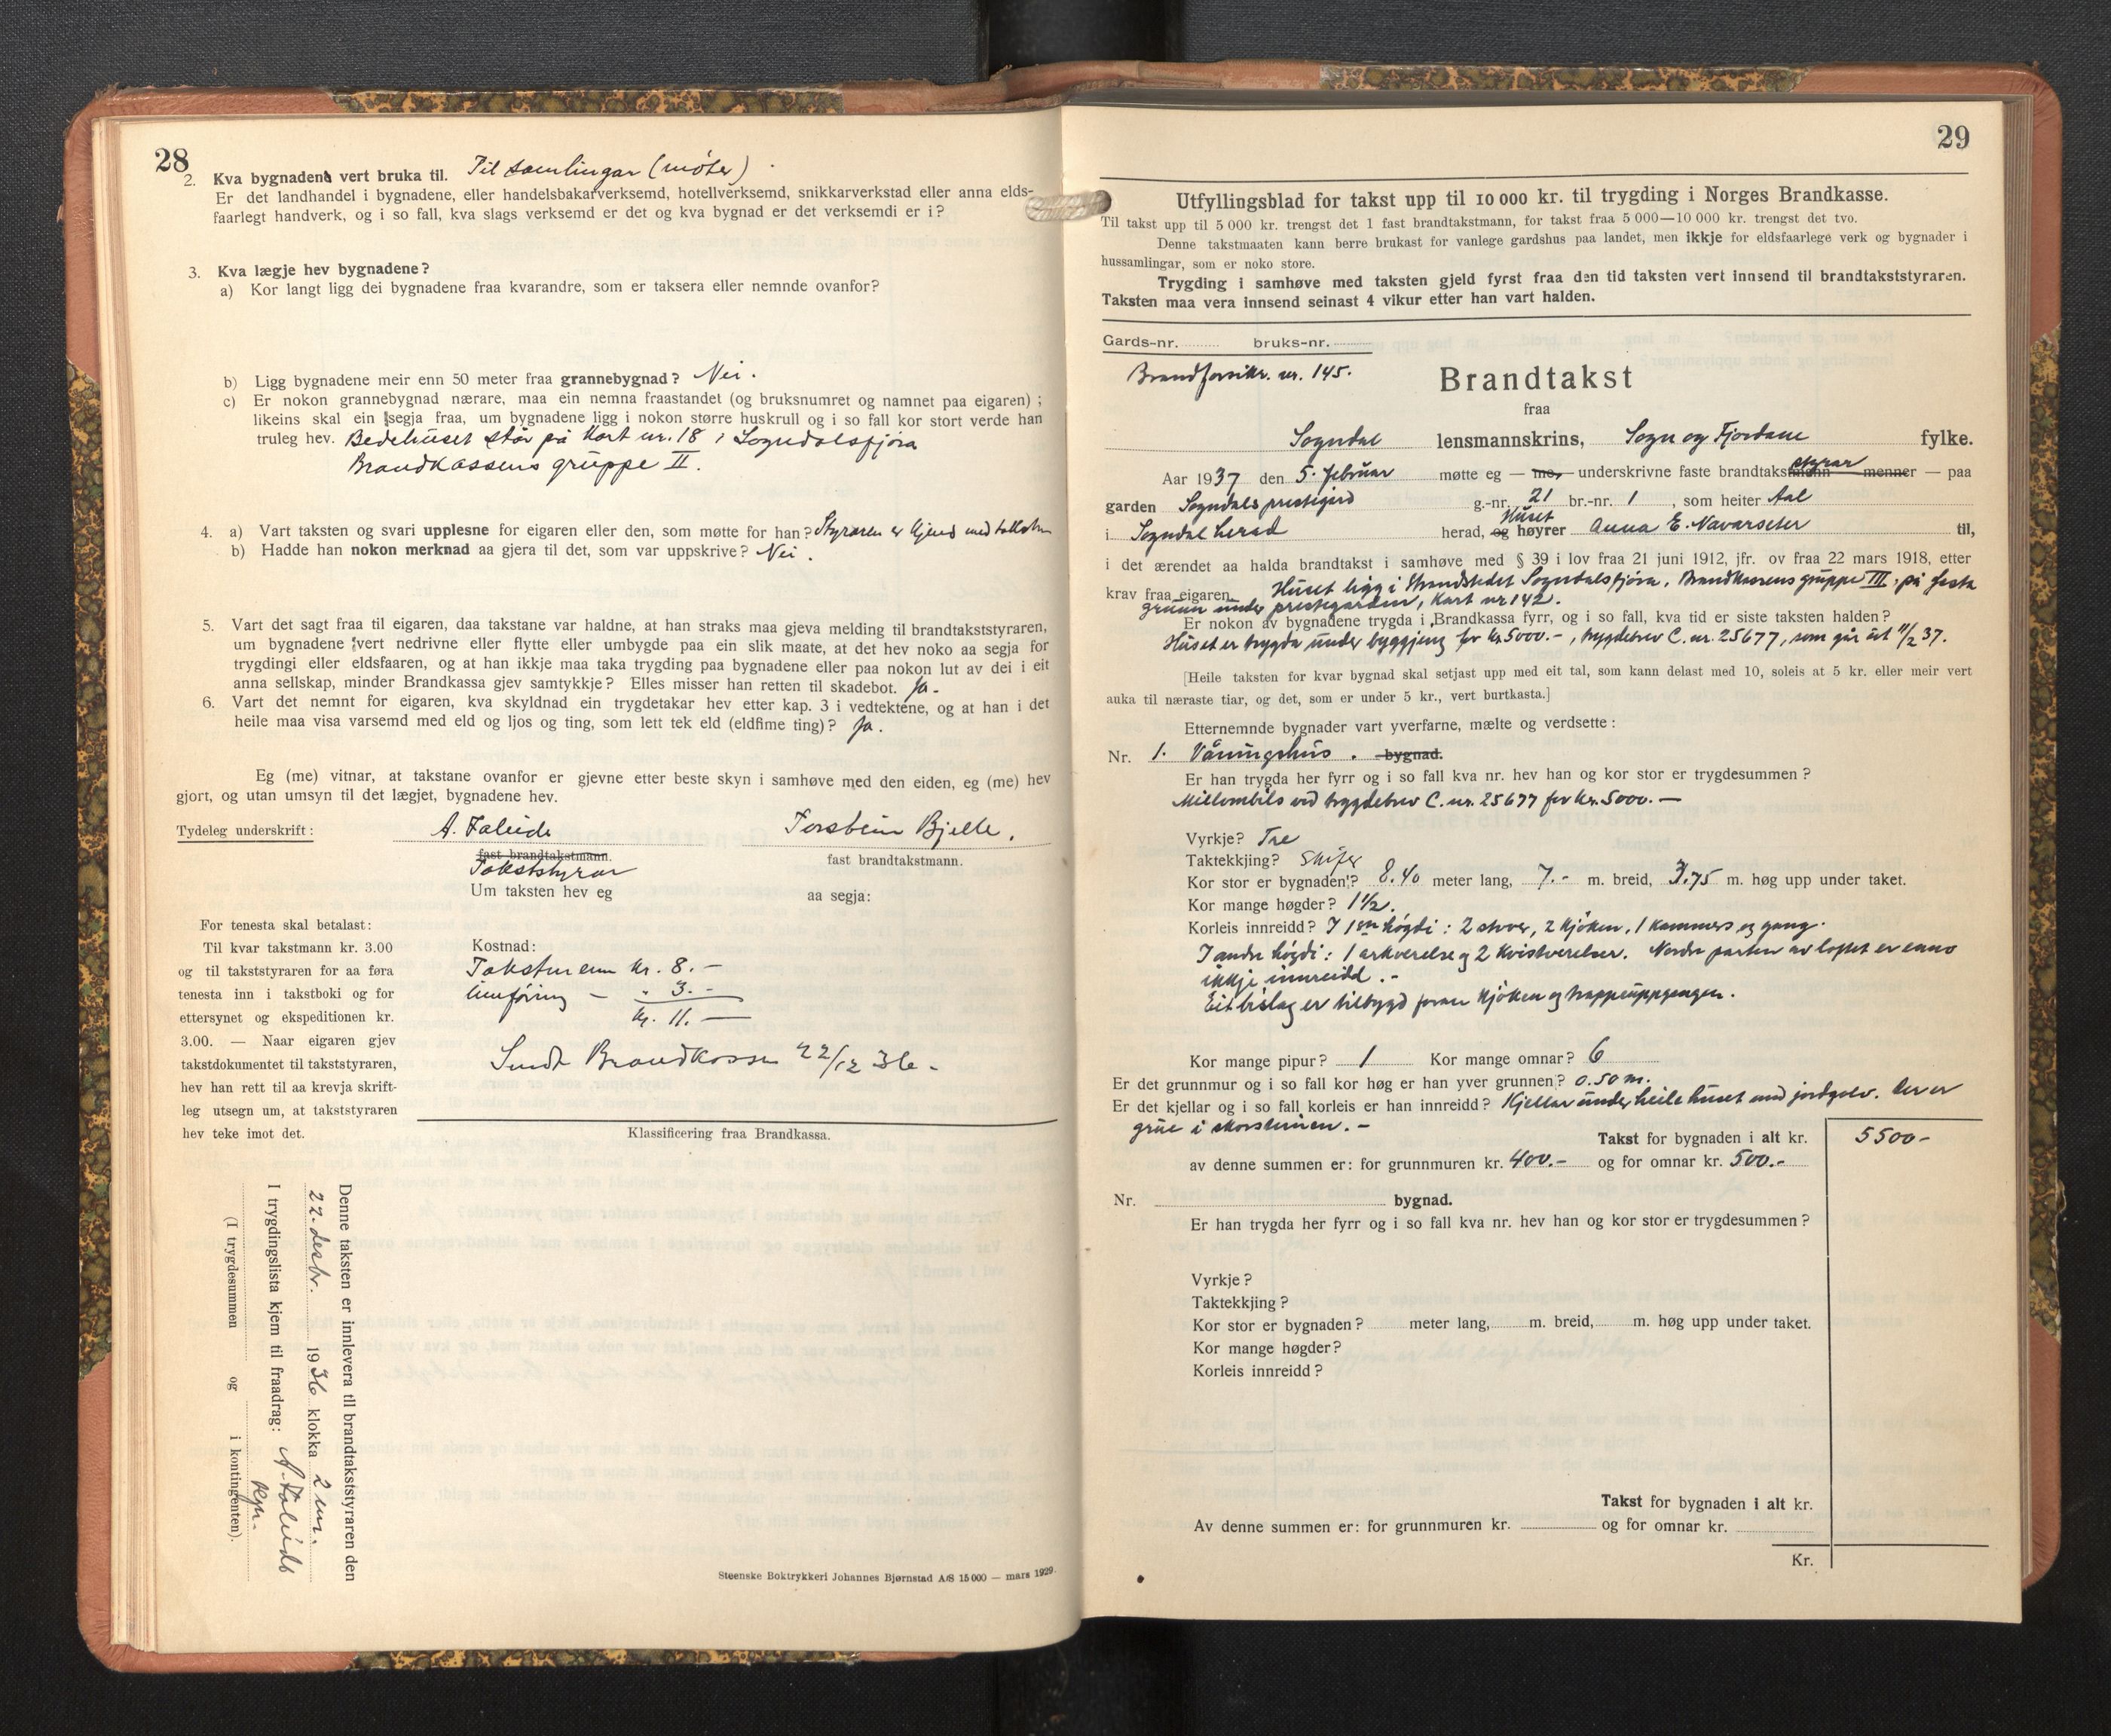 28
2. Kva bygnadena vert bruka til. Til samlingar (møter)
Er det landhandel i bygnadene, eller handelsbakarverksemd, hotellverksemd, snikkarverkstad eller anna elds-
faarlegt handverk, og i so fall, kva slags verksemd er det og kva bygnad er det verksemdi er i?
3. Kva lægje hev bygnadene?
a) Kor langt ligg dei bygnadene fraa kvarandre, som er taksera eller nemnde ovanfor?
b) Ligg bygnadene meir enn 50 meter fraa grannebygnad? Nei.
c) Er nokon grannebygnad nærare, maa ein nemna fraastandet (og bruksnumret og namnet paa eigaren) ;
likeins skal ein segja fraa, um bygnadene ligg i nokon større huskrull og i so fall kor stort verde han
truleg hev. Bedehuset står på Kart nr. 18 i Sogndalsfjøra
Brandkassens gruppe II.
4. a) Vart taksten og svari upplesne for eigaren eller den, som møtte for han? Styraren er kjend med taksten
b) Hadde han nokon merknad aa gjera til det, som var uppskrive? Nei.
5. Vart det sagt fraa til eigaren, daa takstane var haldne, at han straks maa gjeva melding til brandtakststyraren,
um bygnadene vert nedrivne eller flytte eller umbygde paa ein slik maate, at det hev noko aa segja for
trygdingi eller eldsfaaren, og at han ikkje maa taka trygding paa bygnadene eller paa nokon lut av dei i eit
anna sellskap, minder Brandkassa gjev samtykkje? Elles misser han retten til skadebot. Ja.
6. Vart det nemnt for eigaren, kva skyldnad ein trygdetakar hev etter kap. 3 i vedtektene, og at han i det
heile maa visa varsemd med eld og ljos og ting, som lett tek eld (eldfime ting)? Ja.
Eg (me) vitnar, at takstane ovanfor er gjevne etter beste skyn i samhøve med den eiden, eg (me) hev
gjort, og utan umsyn til det lægjet, bygnadene hev.
Tydeleg underskrift: A. Faleide Torstein Bjelle.
fast brandtakstmann. fast brandtakstmann.
Takststyrar
Um taksten hev eg aa segja:
For tenesta skal betalast:
Til kvar takstmann kr. 3.00
og til takststyraren for aa føra
tenesta inn i takstboki og for
ettersynet og ekspeditionen kr.
3.00. — Naar eigaren gjev
takstdokumentet til takststyraren,
hev han rett til aa krevja skrift-
leg utsegn um, at takststyraren
hev teke imot det.
Kostnad:
Takstmenn kr. 8.—
Innføring — " 3.—
kr. 11.—
Sendt Brandkassen 22/12 36.
Klassificering fraa Brandkassa.
Denne taksten er innlevera til brandtakststyraren den
22. desbr. 1936 klokka 2 em.
I trygdingslista kjem til fraadrag: A. Faleide
(I trygdesummen og i kontingenten).
Steenske Boktrykkeri Johannes Bjørnstad A/S 15 000 — mars 1929.
29
Utfyllingsblad for takst upp til 10 000 kr. til trygding i Norges Brandkasse.
Til takst upp til 5 000 kr. trengst det 1 fast brandtakstmann, for takst fraa 5 000—10 000 kr. trengst det tvo.
Denne takstmaaten kann berre brukast for vanlege gardshus paa landet, men ikkje for eldsfaarlege verk og bygnader i
hussamlingar, som er noko store.
Trygding i samhøve med taksten gjeld fyrst fraa den tid taksten vert innsend til brandtakststyraren.
Taksten maa vera innsend seinast 4 vikur etter han vart halden.
Gards-nr. bruks-nr.
Brandforsikr. nr. 145.
Brandtakst
fraa
Sogndal lensmannskrins, Sogn og Fjordane fylke.
Aar 1937 den 5. februar møtte eg — me, — underskrivne faste brandtakstmann styrar menner — paa
garden Sogndals prestegjerd g.-nr. 21 br.-nr. 1, som heiter Aal
i Sogndal herad herad, og Huset høyrer Anna E. Navarseter til,
i det ærendet aa halda brandtakst i samhøve med § 39 i lov fraa 21 juni 1912, jfr. ov fraa 22 mars 1918, etter
krav fraa eigaren. Huset ligg i Strandstedet Sogndalsfjøra, Brandkassens gruppe III, på festa
grunn under prestegarden, Kart nr 142.
Er nokon av bygnadene trygda i Brandkassa fyrr, og i so fall, kva tid er siste taksten halden?
Huset er trygda under byggjeng for kr. 5000.-, trygdebrev C. nr. 25677, som går ut 11/2 37.
[Heile taksten for kvar bygnad skal setjast upp med eit tal, som kann delast med 10, soleis at 5 kr. eller meir vert
auka til næraste tiar, og det, som er under 5 kr., vert burtkasta.]
Etternemnde bygnader vart yverfarne, mælte og verdsette:
Nr. 1. Våningshus. bygnad.
Er han trygda her fyrr og i so fall kva nr. hev han og kor stor er trygdesummen?
Millombils ved trygdebrev C. nr. 25677 for kr. 5000.—
Vyrkje? Tre
Taktekkjing? Skifer
Kor stor er bygnaden? 8.40 meter lang, 7.- m. breid, 3.75 m. høg upp under taket.
Kor mange høgder? 1½.
Korleis innreidd? I 1ste høgdi: 2 stover, 2 kjøken, 1 kammers og gang.
I andre høgdi: 1 arkverelse og 2 kvistverelser. Nordre parten av loftet er enno
ikkje innreidd.-
Eit bislag er tilbygd foran kjøken og trappeuppgangen.
Kor mange pipur? 1 Kor mange omnar? 6
Er det grunnmur og i so fall kor høg er han yver grunnen? 0.50 m.
Er det kjellar og i so fall korleis er han innreidd? Kjellar under heile huset med jordgolv. Der er
grue i skorsteinen.-
Takst for bygnaden i alt kr. 5500-
av denne summen er: for grunnmuren kr. 400.- og for omnar kr. 500.-
Nr. bygnad.
Er han trygda her fyrr og i so fall kva nr. hev han og kor stor er trygdesummen?
Vyrkje?
Taktekkjing?
Kor stor er bygnaden? meter lang, m. breid, m. høg upp under taket.
Kor mange høgder?
Korleis innreidd?
Takst for bygnaden i alt kr.
Av denne summen er: for grunnmuren kr. og for omnar kr.
Kr.